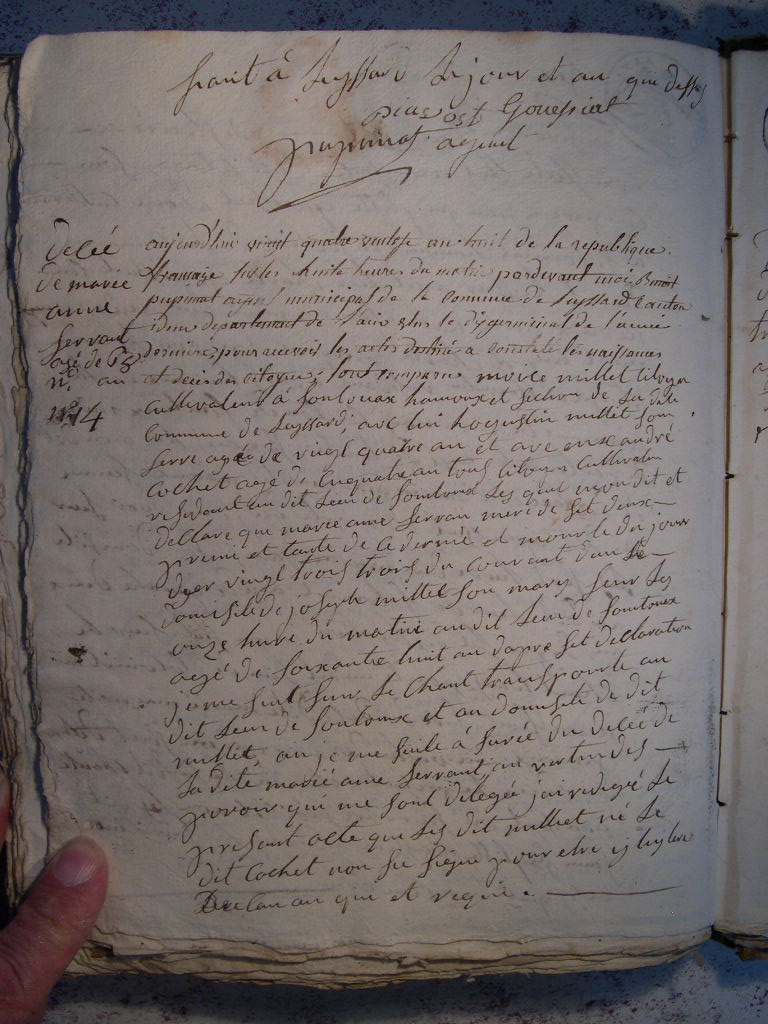 fait à Luyssard le jour et an que dessus
pupunat agent
Décée
de marie
anne
Servant
agé de 68
an
N° 14
aujourd'hui vingt quatre ventose an huit de la republique
francaise sur les huite heures du matin pardevant moi Benoit
pupunat agent municipal de la Commune de Luyssard Canton
idem departement de l'ain elus le dix germinal de l'année
derniere pour recevoir les actes destiné a constaté les naissances
et décès des citoyens, sont comparus moise millet citoyen
cultivateur à Soulouax hamoux et section de la dite
Commune de Luyssard, avec lui hogustin millet son
frere agée de vingt quatre an et avec enxandré
Cochet agé de cinquate an tous citoyen cultivateur
residant au dit lieu de Souloux les quel mon dit et
declare que marie anne Servan mere de set deux
premié et tante de ce dernié et mourte du jour
dyer vingt trois du courant dans le
domisile de joseph millet son mary seur les
onze hure du matin au dit lieu de Soulouax
agé de soixante huit an dapre set declaration
je me suit sur le chant transporte au
dit lieu de Souloux et au domisile de dit
millet, an je me suile à surée du decée de
la dite marié anne Servant, au vertu des
pouvoir qui me sont délegée j'ai redigée le
present acte que les dit millet né le
dit Cochet non su signe pour etre illyteré
De ce an qui et requi.